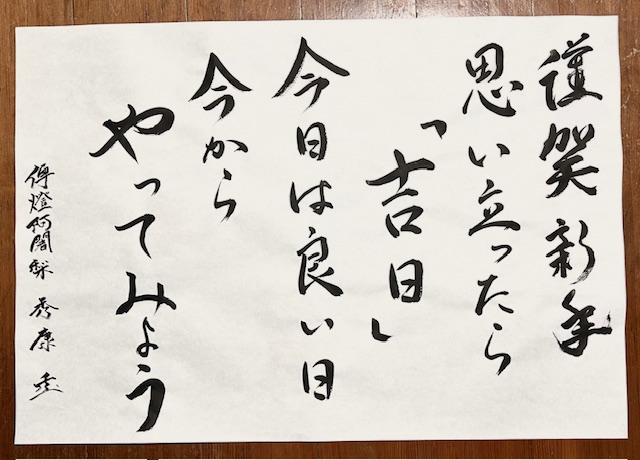 謹賀新年
思い立ったら
「吉日」
今日は良い日
今から
やってみよう
傳燈阿闍梨 秀康